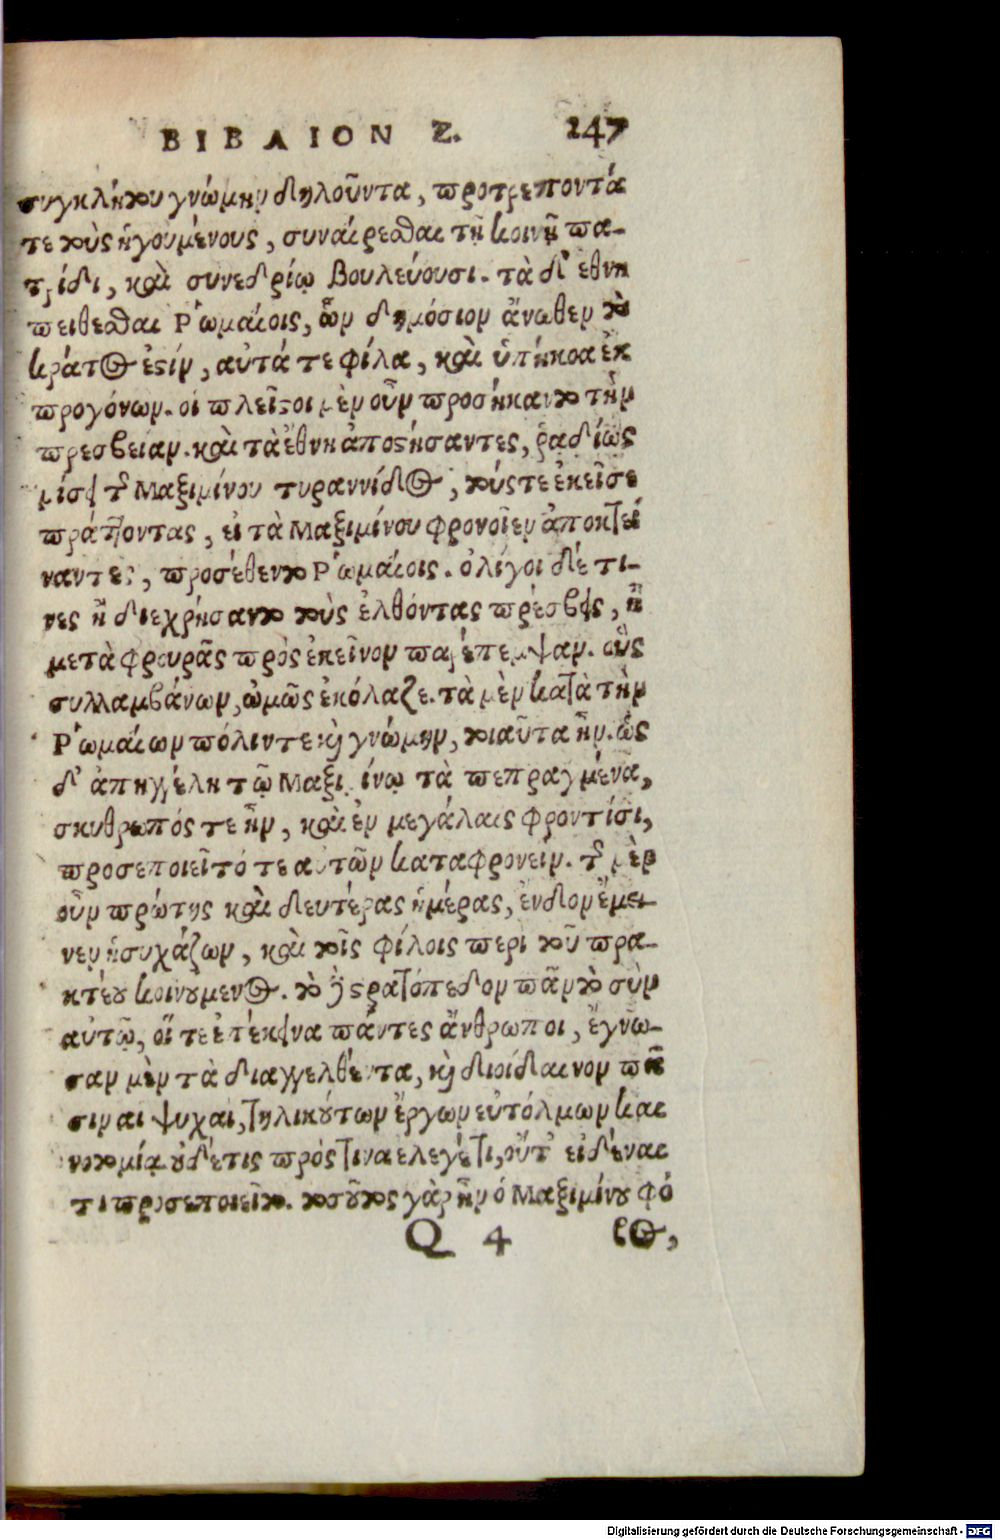 ΒΙΒΛΙΟΝ Ζ. 247
συγκλήτου γνώμην δηλοῦντα, προτρεποντά
τε τοὺς ἡγουμένους, συναίρεσθαι τῇ κοινῇ πα-
τρίδι, καὶ συνεδρίῳ βουλεύουσι. τὰ δ' εθνη
πειθεσθαι Ρ'ωμαίοις, ὧν δημόσιον ἄνωθεν τὸ
κράτος ἐστίν, αὐτά τε φίλα, καὶ ὑπήκοα ἐκ
προγόνων. οἱ πλεῖστοι μὲν οὖν προσήκαντο τὴν
πρεσβείαν. καὶ τὰ ἔθνη ἀποστήσαντες, ῥᾳδίως
μίσει τῆς Μαξιμίνου τυραννίδος, τούς τε ἐκεῖσε
πράττοντας, εἰ τὰ Μαξιμίνου φρονοῖεν ἀποκτεί
ναντες, προσέθεντο Ρ'ωμαίοις. ὀλίγοι δέ τι-
νες ἢ διεχρήσαντο τοὺς ἐλθόντας πρέσβεις, ἢ
μετὰ φρουρᾶς πρὸς ἐκεῖνον παρέπεμψαν. οὓς
συλλαμβάνων, ὠμῶς ἐκόλαζε. τὰ μὲν κατὰ τὴν
Ρ'ωμαίων πόλιν τε καὶ γνώμην, τοιαῦτα ἦν. ὡς
δ' ἀπηγγέλη τῷ Μαξιμίνῳ τὰ πεπραγμένα,
σκυθρωπός τε ἦν, καὶ ἐν μεγάλαις φροντίσι,
προσεποιεῖτό τε αυτῶν καταφρονεῖν. τῆς μὲν
οὖν πρώτης καὶ δευτέρας ἡμέρας, ἐνδον ἔμει-
νεν ἡσυχάζων, καὶ τοῖς φίλοις περὶ τοῦ πρα-
κτέου κοινουμενος. τὸ δὲ στρατόπεδον πᾶν τὸ σὺν
αὐτῷ, οἵ τε ἐπ' ἐκεινα πάντες ἄνθρωποι, ἔγνω-
σαν μὲν τὰ διαγγελθέντα, καὶ διοίδαινον πᾶ
σιν αι ψυχαὶ, τηλικούτων ἔργων εὐτόλμων και
νοτομίᾳ οὐδέ τις πρός τινα ελεγέ τι, οὔτ' εἰδέναι
τι προσεποιεῖτο. τοσοῦτος γὰρ ἦν ὁ Μαξιμίνου φό
Q 4 βος,
Digitalisierung gefördert durch die Deutsche Forschungsgemeinschaft - DFG